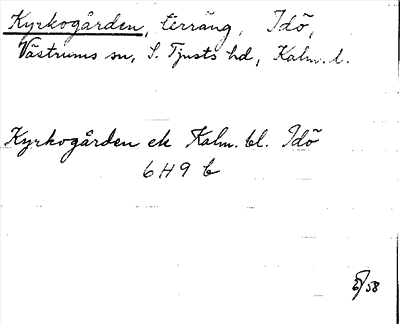 Kyrkogården, terräng, Idö,
Västrums sn, S. Tjusts hd, Kalm. l.
Kyrkogården ek Kalm. bl. Idö
6 H 9 b
/58